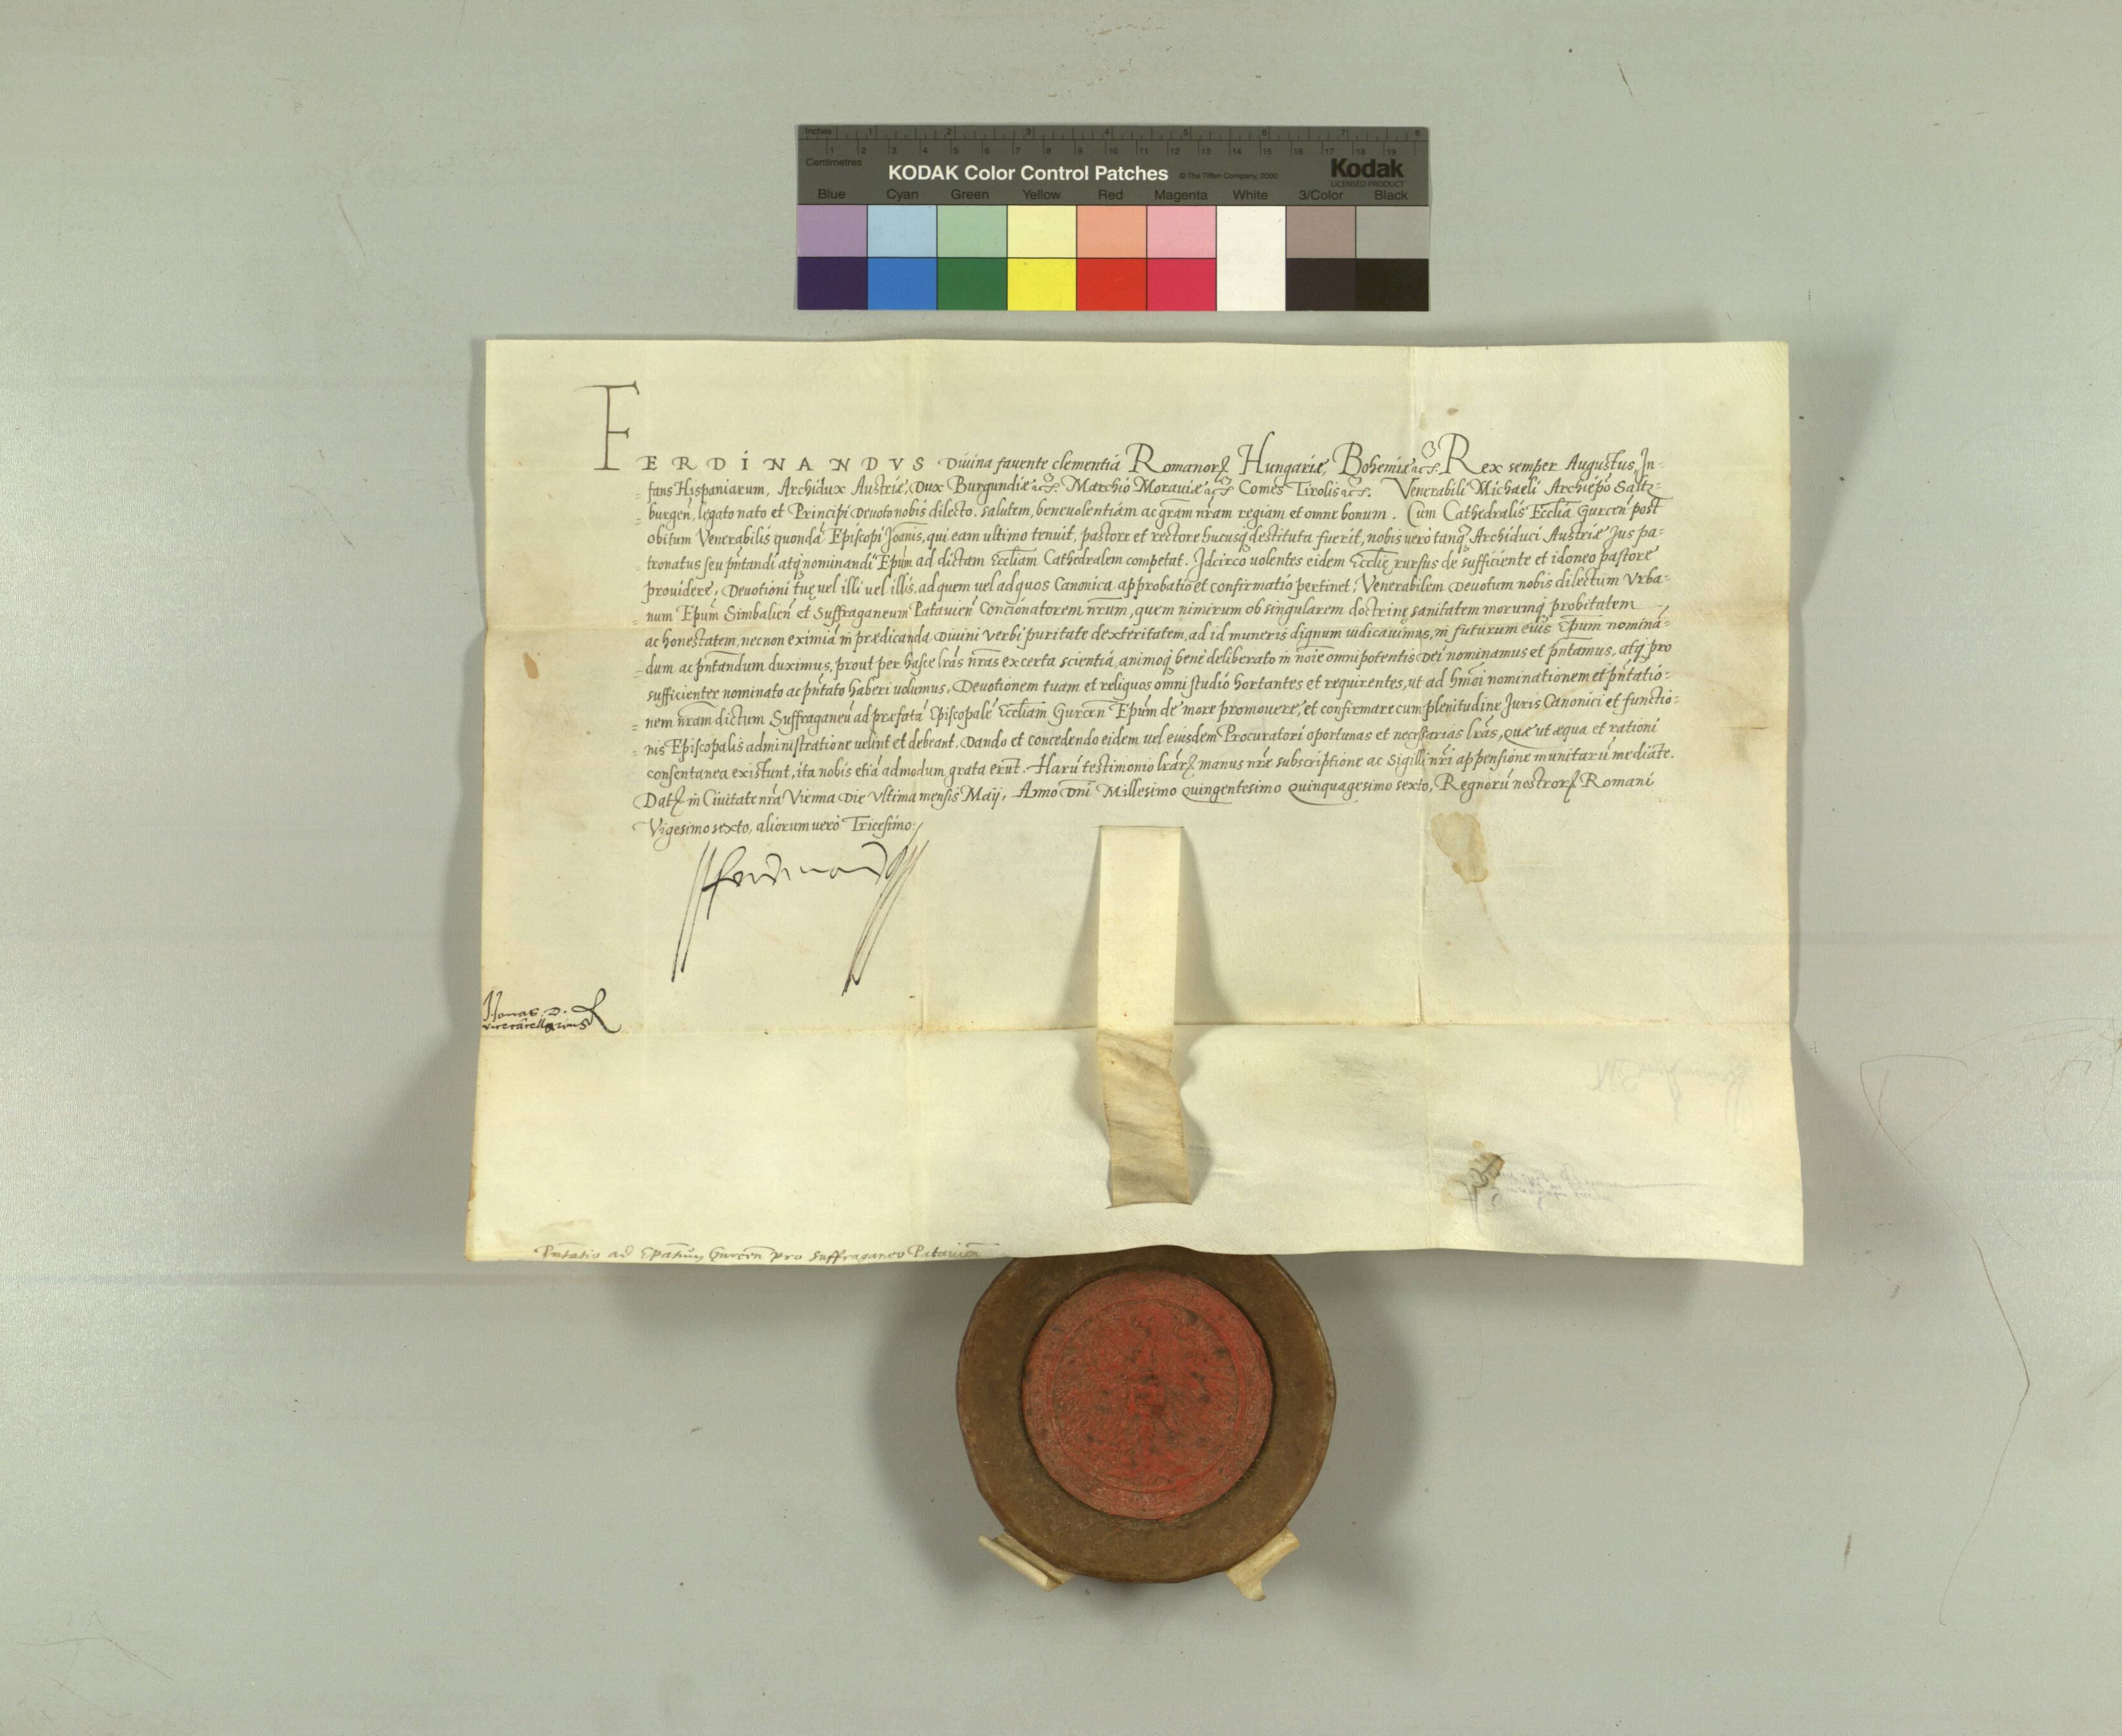 Inches 1 2 3 4 5 6 7 8
1 2 3 4 5 6 7 8 9 10 11 12 13 14 15 16 17 18 19
Centimetres
KODAK Color Control Patches © The Tiffen Company, 2000 Kodak
LICENSED PRODUCT
Blue Cyan Green Yellow Red Magenta White 3/Color Black
FERDINANDVS Diuina fauente clementia Romanorꝝ Hungariæ, Bohemiæ ac̃ Rex semper Augustus, In-
fans Hispaniarum, Archidux Austriæ, Dux Burgundiæ ac̃ Marchio Morauiæ ac̃ Comes Tirolis ac̃. Venerabili Michaeli Archiepõ Saltz=
burgen̄, legato nato et Principi deuoto nobis dilecto. salutem, beneuolentiam ac gr̃am nr̃am regiam et omne bonum. Cum Cathedralis Eccl̃ia Gurcen̄ post
obitum Venerabilis quondã Episcopi Joãnis, qui eam ultimo tenuit, pastore et rectore hucusq̨ destituta fuerit, nobis uerò tanq̃ Archiduci Austriæ Jus pa-
tronatus seu pñtandi atq̨ nominandi Ep̃um ad dictam Eccl̃iam Cathedralem competat. Idcirco uolentes eidem Eccl̃ię rursus de sufficiente et idoneo pastore
prouidere, Deuotioni tuę uel illi uel illis, ad quem uel ad quos Canonica approbatio et confirmatio pertinet, Venerabilem Deuotum nobis dilectum Vrba-
num Ep̃um Simbalien̄ et Suffraganeum Patauien̄ Concionatorem nr̃um, quem nimirum ob singularem doctrinę sanitatem morumq̨ probitatem
ac honestatem, necnon eximiã in prædicanda Diuini verbi puritate dexteritatem, ad id muneris dignum iudicauimus, in futurum eius Ep̃um nominã-
dum ac pñtandum duximus, prout per hasce lr̃as nr̃as ex certa scientia, animoq̨ bene deliberato in nõie omnipotentis Dei nominamus et pñtamus, atq̨ pro
sufficienter nominato ac pñtato haberi uolumus, Deuotionem tuam et reliquos omni studio hortantes et requirentes, ut ad hmõi nominationem et pñtatio-
nem nr̃am dictum Suffraganeũ ad præfatã Episcopalẽ Eccl̃iam Gurcen̄ Ep̃um de more promouere, et confirmare cum plenitudine Juris Canonici et functio-
nis Episcopalis administratione uelint et debeant. Dando et concedendo eidem uel eiusdem Procuratori oportunas et necessarias lr̃as, Quæ ut æqua et rationi
consentanea existunt, ita nobis etiã admodum grata erũt. Harũ testimonio lr̃arꝝ manus nr̃æ subscriptione ac Sigilli nr̃i appensione munitarũ mediãte.
Datꝝ in Ciuitate nr̃a Vienna Die Vltima mensis Maij, Anno Dñi Millesimo Quingentesimo Quinquagesimo sexto, Regnorũ nostrorꝝ Romani
Vigesimo sexto, aliorum uerò Tricesimo.
Ferdinand
Jonas. D.
Vicecancellarius
Pñtatio ad Epatum Gurcen̄ pro Suffraganeo Patauien̄